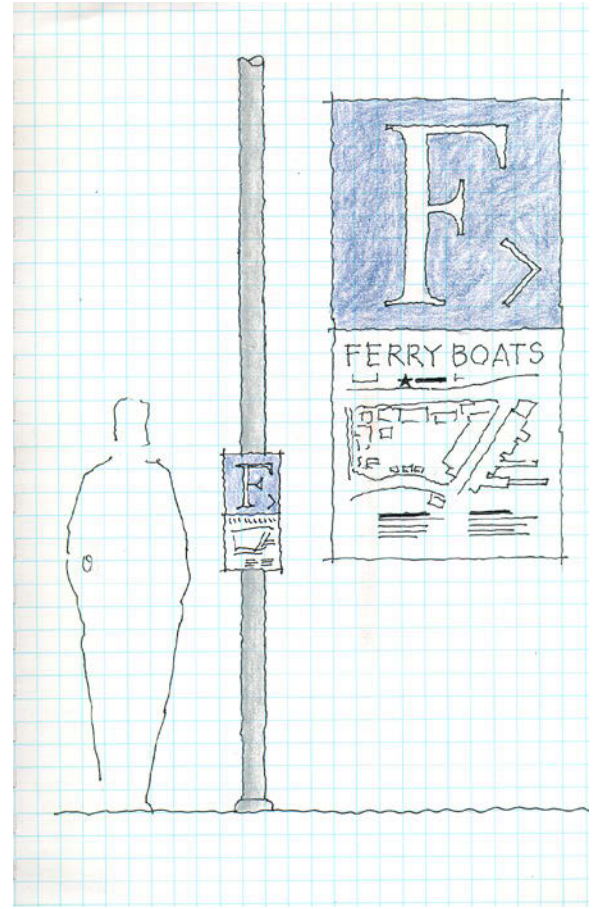 F >
FERRY BOATS
F >